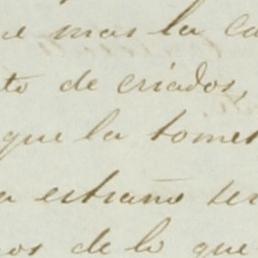 e mas la ca
to de criados,
que la tomes
a estraño ser
nos de lo que